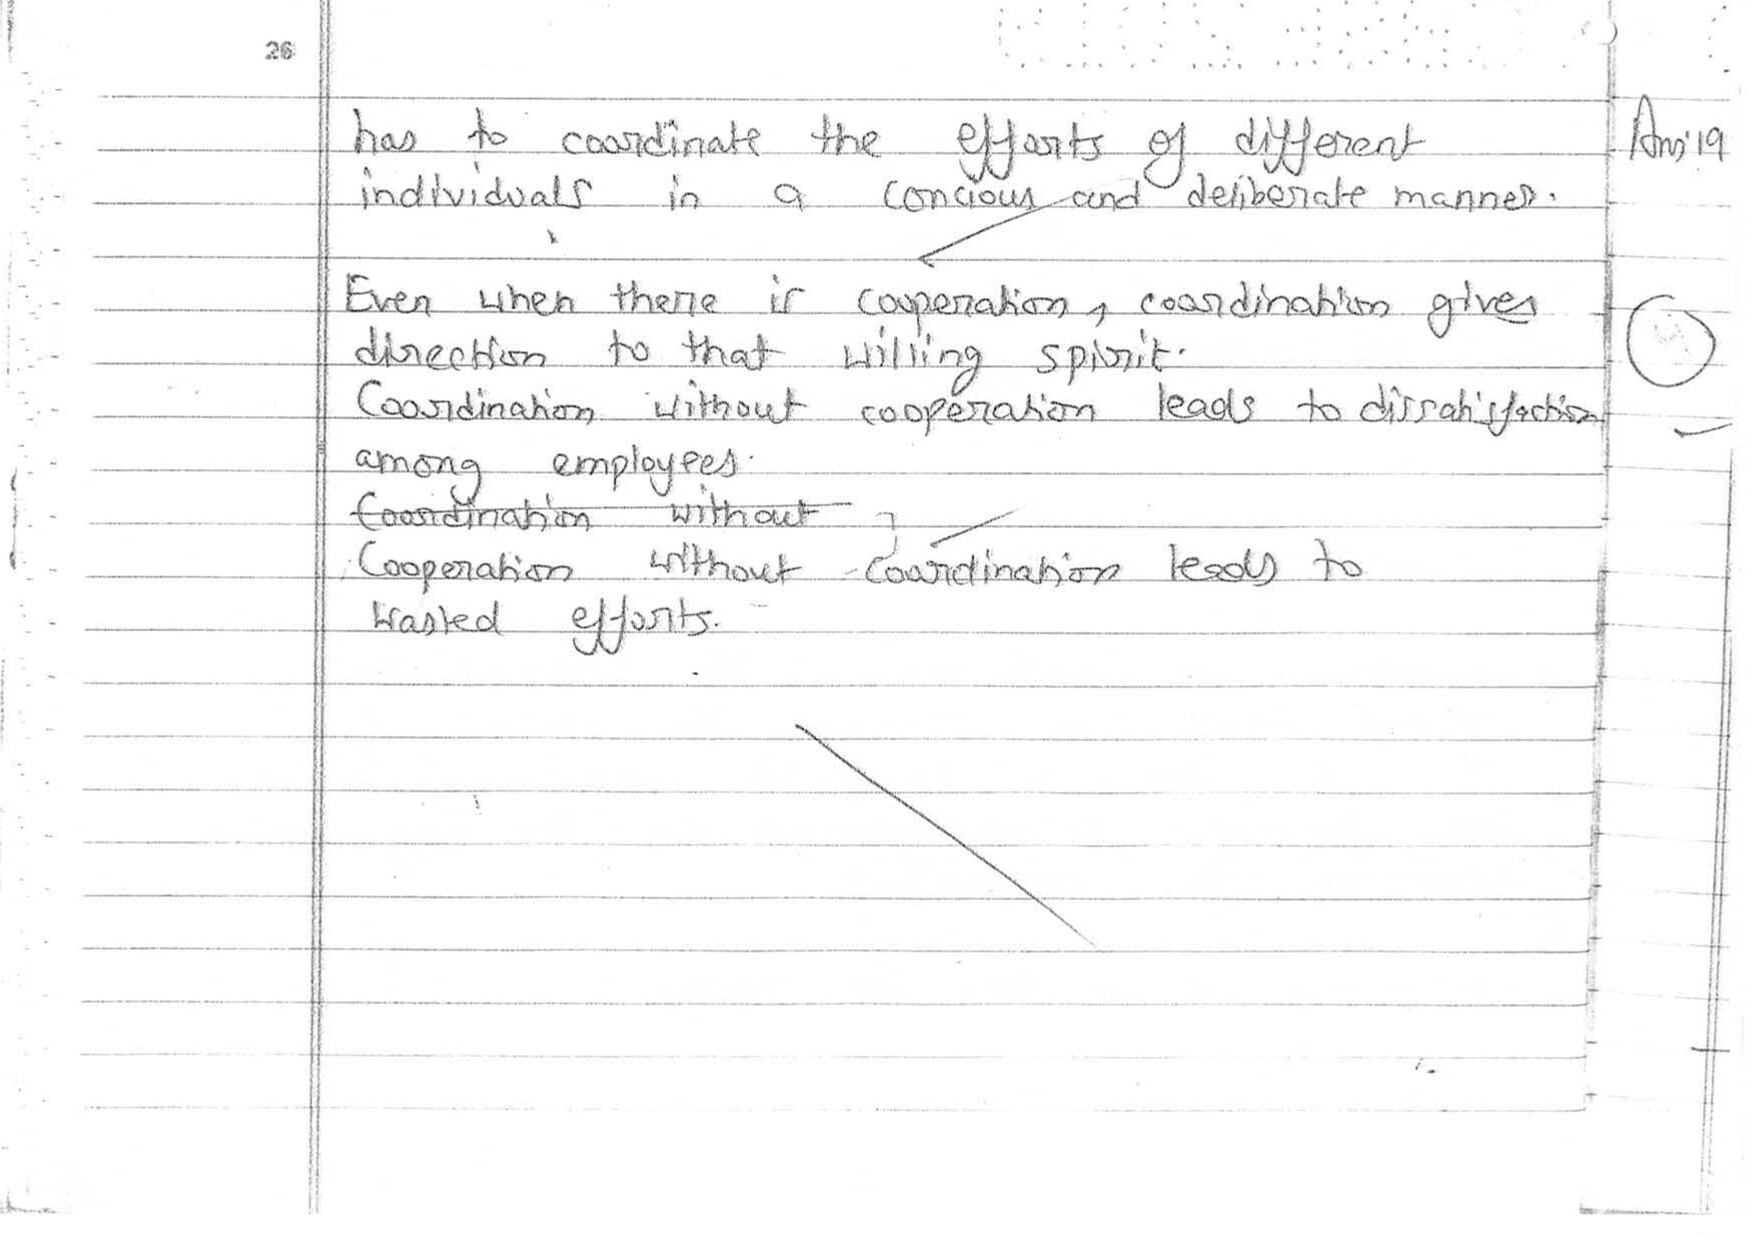 26
has to coordinate the efforts of different
Ans'19
individuals in a concious and deliberate manner.
Even when there is cooperation, coordination gives
direction to that willing spirit.
Coordination without cooperation leads to dissatisfaction
among employees.
Coordination without
Cooperation without coordination leads to
wasted efforts.